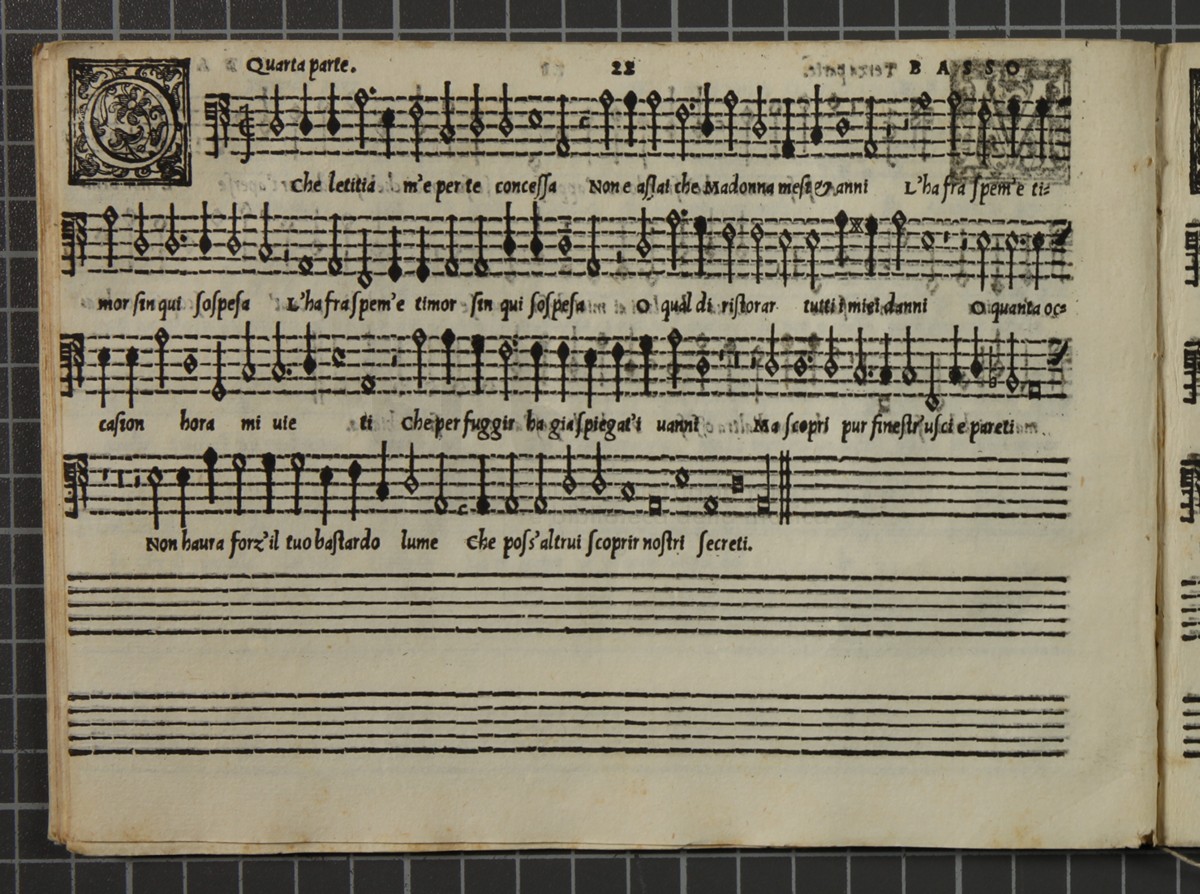 Quarta parte. 22 BASSO
C
Che letitia m'e per te concessa Non e assai che Madonna mesi & anni L'ha fra spem'e ti-
mor sin qui sospesa L'ha fra spem'e timor sin qui sospesa O qual di ristorar tutti i miei danni O quanta oc-
casion hora mi uie ti Che per fuggir ha gia spiegat'i uanni Ma scopri pur finestr'usci e pareti
Non haura forz'il tuo bastardo lume Che poss'altrui scoprir nostri secreti.